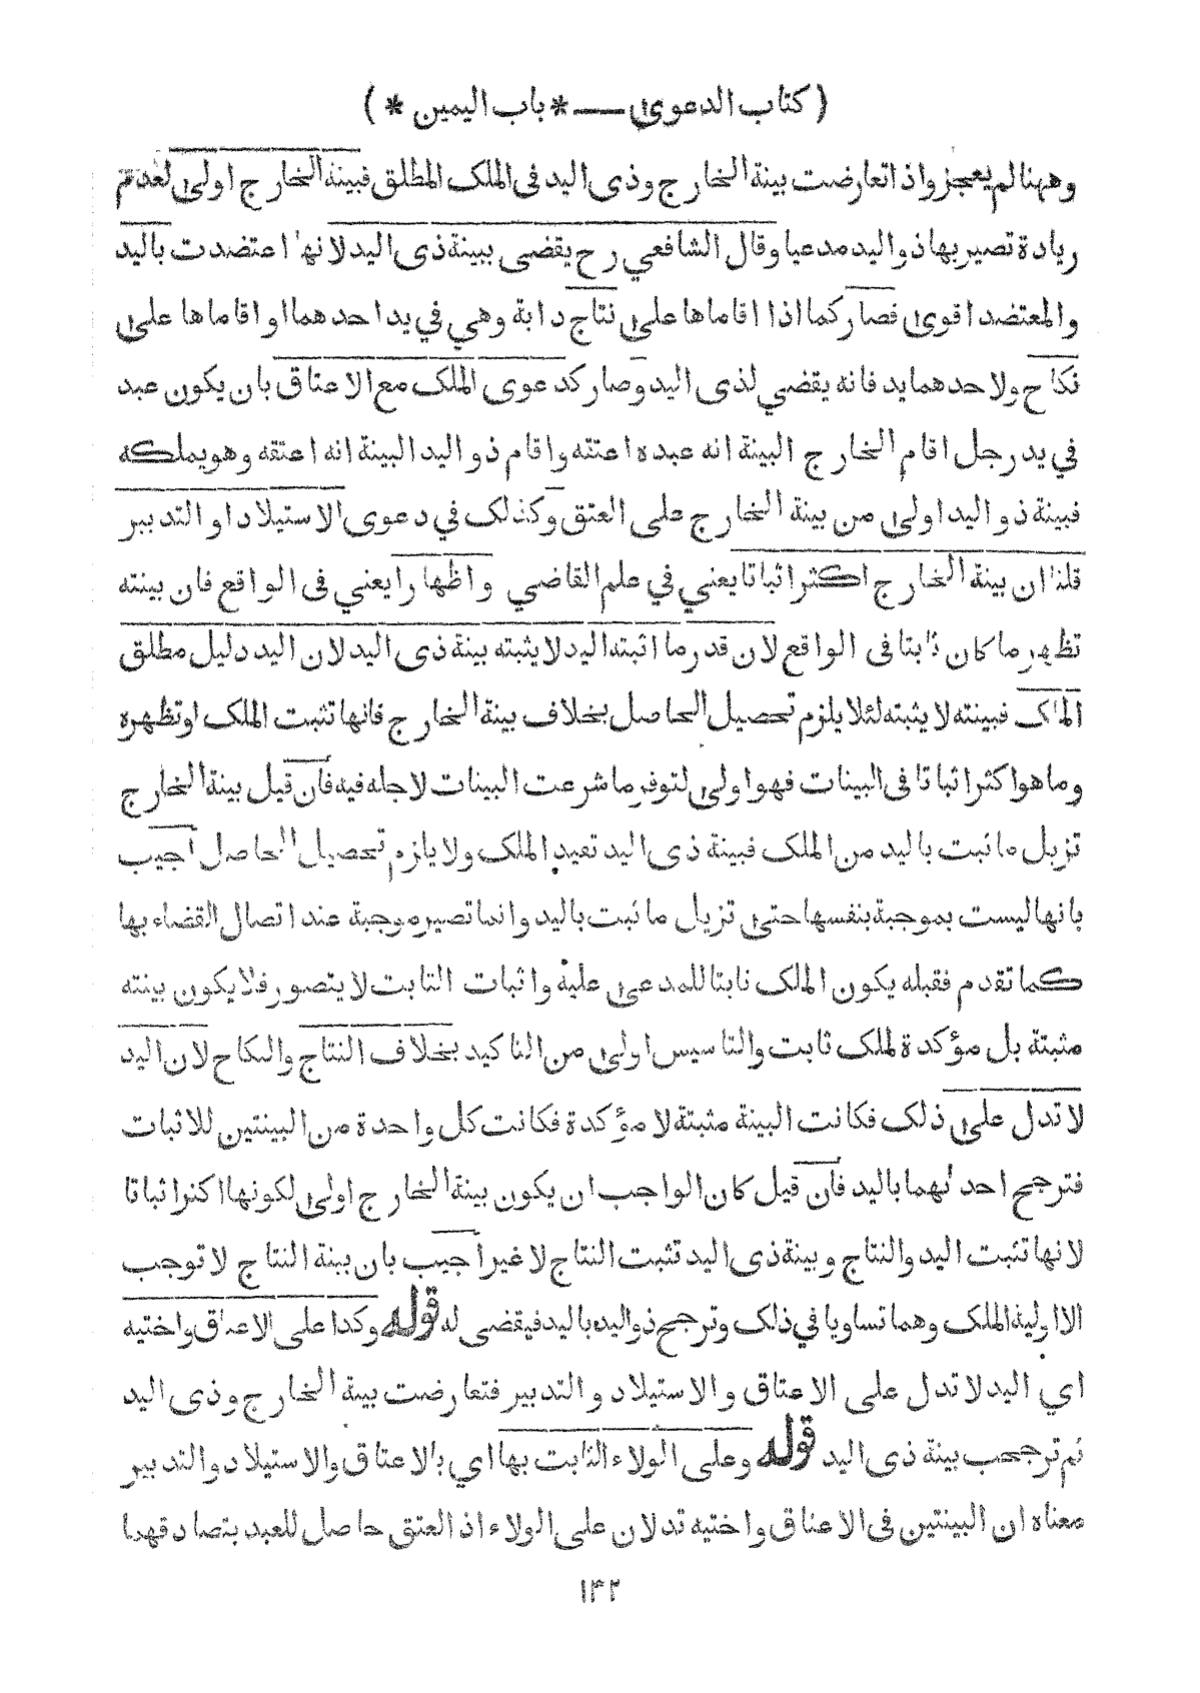 ( كتاب الدعوى — * باب اليمين * )
وههنا لم يعجز واذا تعارضت بينة الخارج وذى اليد فى الملك المطلق فبينة الخارج اولى لعدم
زيادة تصير بها ذو اليد مدعيا وقال الشافعي رح يقضى ببينة ذى اليد لانها اعتضدت باليد
والمعتضد اقوى فصار كما اذا اقاماها على نتاج دابة وهي في يد احدهما او اقاماها على
نكاح ولاحدهما يد فانه يقضي لذى اليد وصار كدعوى الملك مع الاعتاق بان يكون عبد
في يد رجل اقام الخارج البينة انه عبده اعتقه واقام ذو اليد البينة انه اعتقه وهو يملكه
فبينة ذو اليد اولى من بينة الخارج على العتق وكذلك في دعوى الاستيلاد او التدبير
قلنا ان بينة الخارج اكثر اثباتا يعني في علم القاضي واظهارا يعني فى الواقع فان بينته
تظهر ما كان ثابتا فى الواقع لان قدر ما اثبته اليد لا يثبته بينة ذى اليد لان اليد دليل مطلق
الملك فبينته لا يثبته لئلا يلزم تحصيل الحاصل بخلاف بينة الخارج فانها تثبت الملك او تظهره
وما هو اكثر اثباتا فى البينات فهو اولى لتوفر ما شرعت البينات لاجله فيه فان قيل بينة الخارج
تزيل ما ثبت باليد من الملك فبينة ذى اليد تفيد الملك ولا يلزم تحصيل الحاصل اجيب
بانها ليست بموجبة بنفسها حتى تزيل ما ثبت باليد وانما تصير موجبة عند اتصال القضاء بها
كما تقدم فقبله يكون الملك ثابتا للمدعى عليه واثبات الثابت لا يتصور فلا يكون بينته
مثبتة بل مؤكدة لملك ثابت والتاسيس اولى من التاكيد بخلاف النتاج والنكاح لان اليد
لا تدل على ذلك فكانت البينة مثبتة لا مؤكدة فكانت كل واحدة من البينتين للاثبات
فترجح احدٮهما باليد فان قيل كان الواجب ان يكون بينة الخارج اولى لكونها اكثر اثباتا
لانها تثبت اليد والنتاج وبينة ذى اليد تثبت النتاج لا غير اجيب بان بينة النتاج لا توجب
الا اولية الملك وهما تساويا في ذلك وترجح ذو اليد باليد فيقضى له قوله وكذا على الاعتاق واختيه
اي اليد لا تدل على الاعتاق والاستيلاد والتدبير فتعارضت بينة الخارج وذى اليد
ثم ترجحب بينة ذى اليد قوله وعلى الولاء الثابت بها اي بالاعتاق والاستيلاد والتدبير
معناه ان البينتين فى الاعتاق واختيه تدلان على الولاء اذ العتق حاصل للعبد بتصادقهما
١۴٢